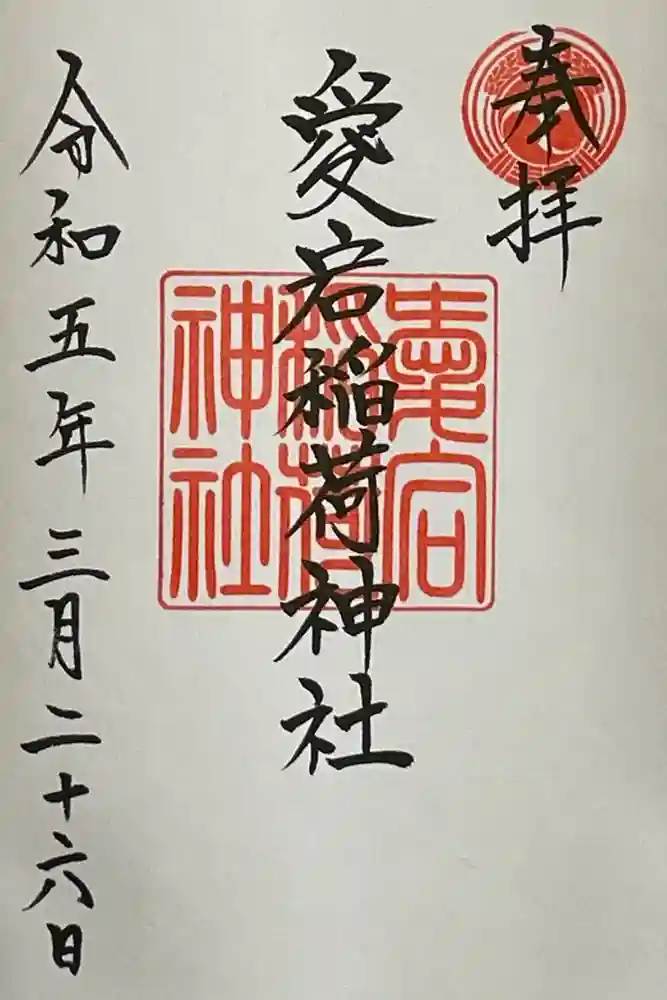 奉拝
愛宕稲荷神社
愛宕
稲荷
神社
令和五年三月二十六日